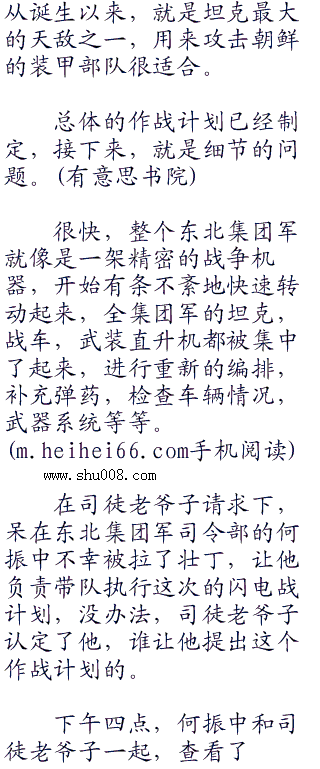 从诞生以来，就是坦克最大
的天敌之一，用来攻击朝鲜
的装甲部队很适合。
总体的作战计划已经制
定，接下来，就是细节的问
题。(有意思书院)
很快，整个东北集团军
就像是一架精密的战争机
器，开始有条不紊地快速转
动起来，全集团军的坦克，
战车，武装直升机都被集中
了起来，进行重新的编排，
补充弹药，检查车辆情况，
武器系统等等。
(m.heihei66.com手机阅读)
www.shu008.com
在司徒老爷子请求下，
呆在东北集团军司令部的何
振中不幸被拉了壮丁，让他
负责带队执行这次的闪电战
计划，没办法，司徒老爷子
认定了他，谁让他提出这个
作战计划的。
下午四点，何振中和司
徒老爷子一起，查看了